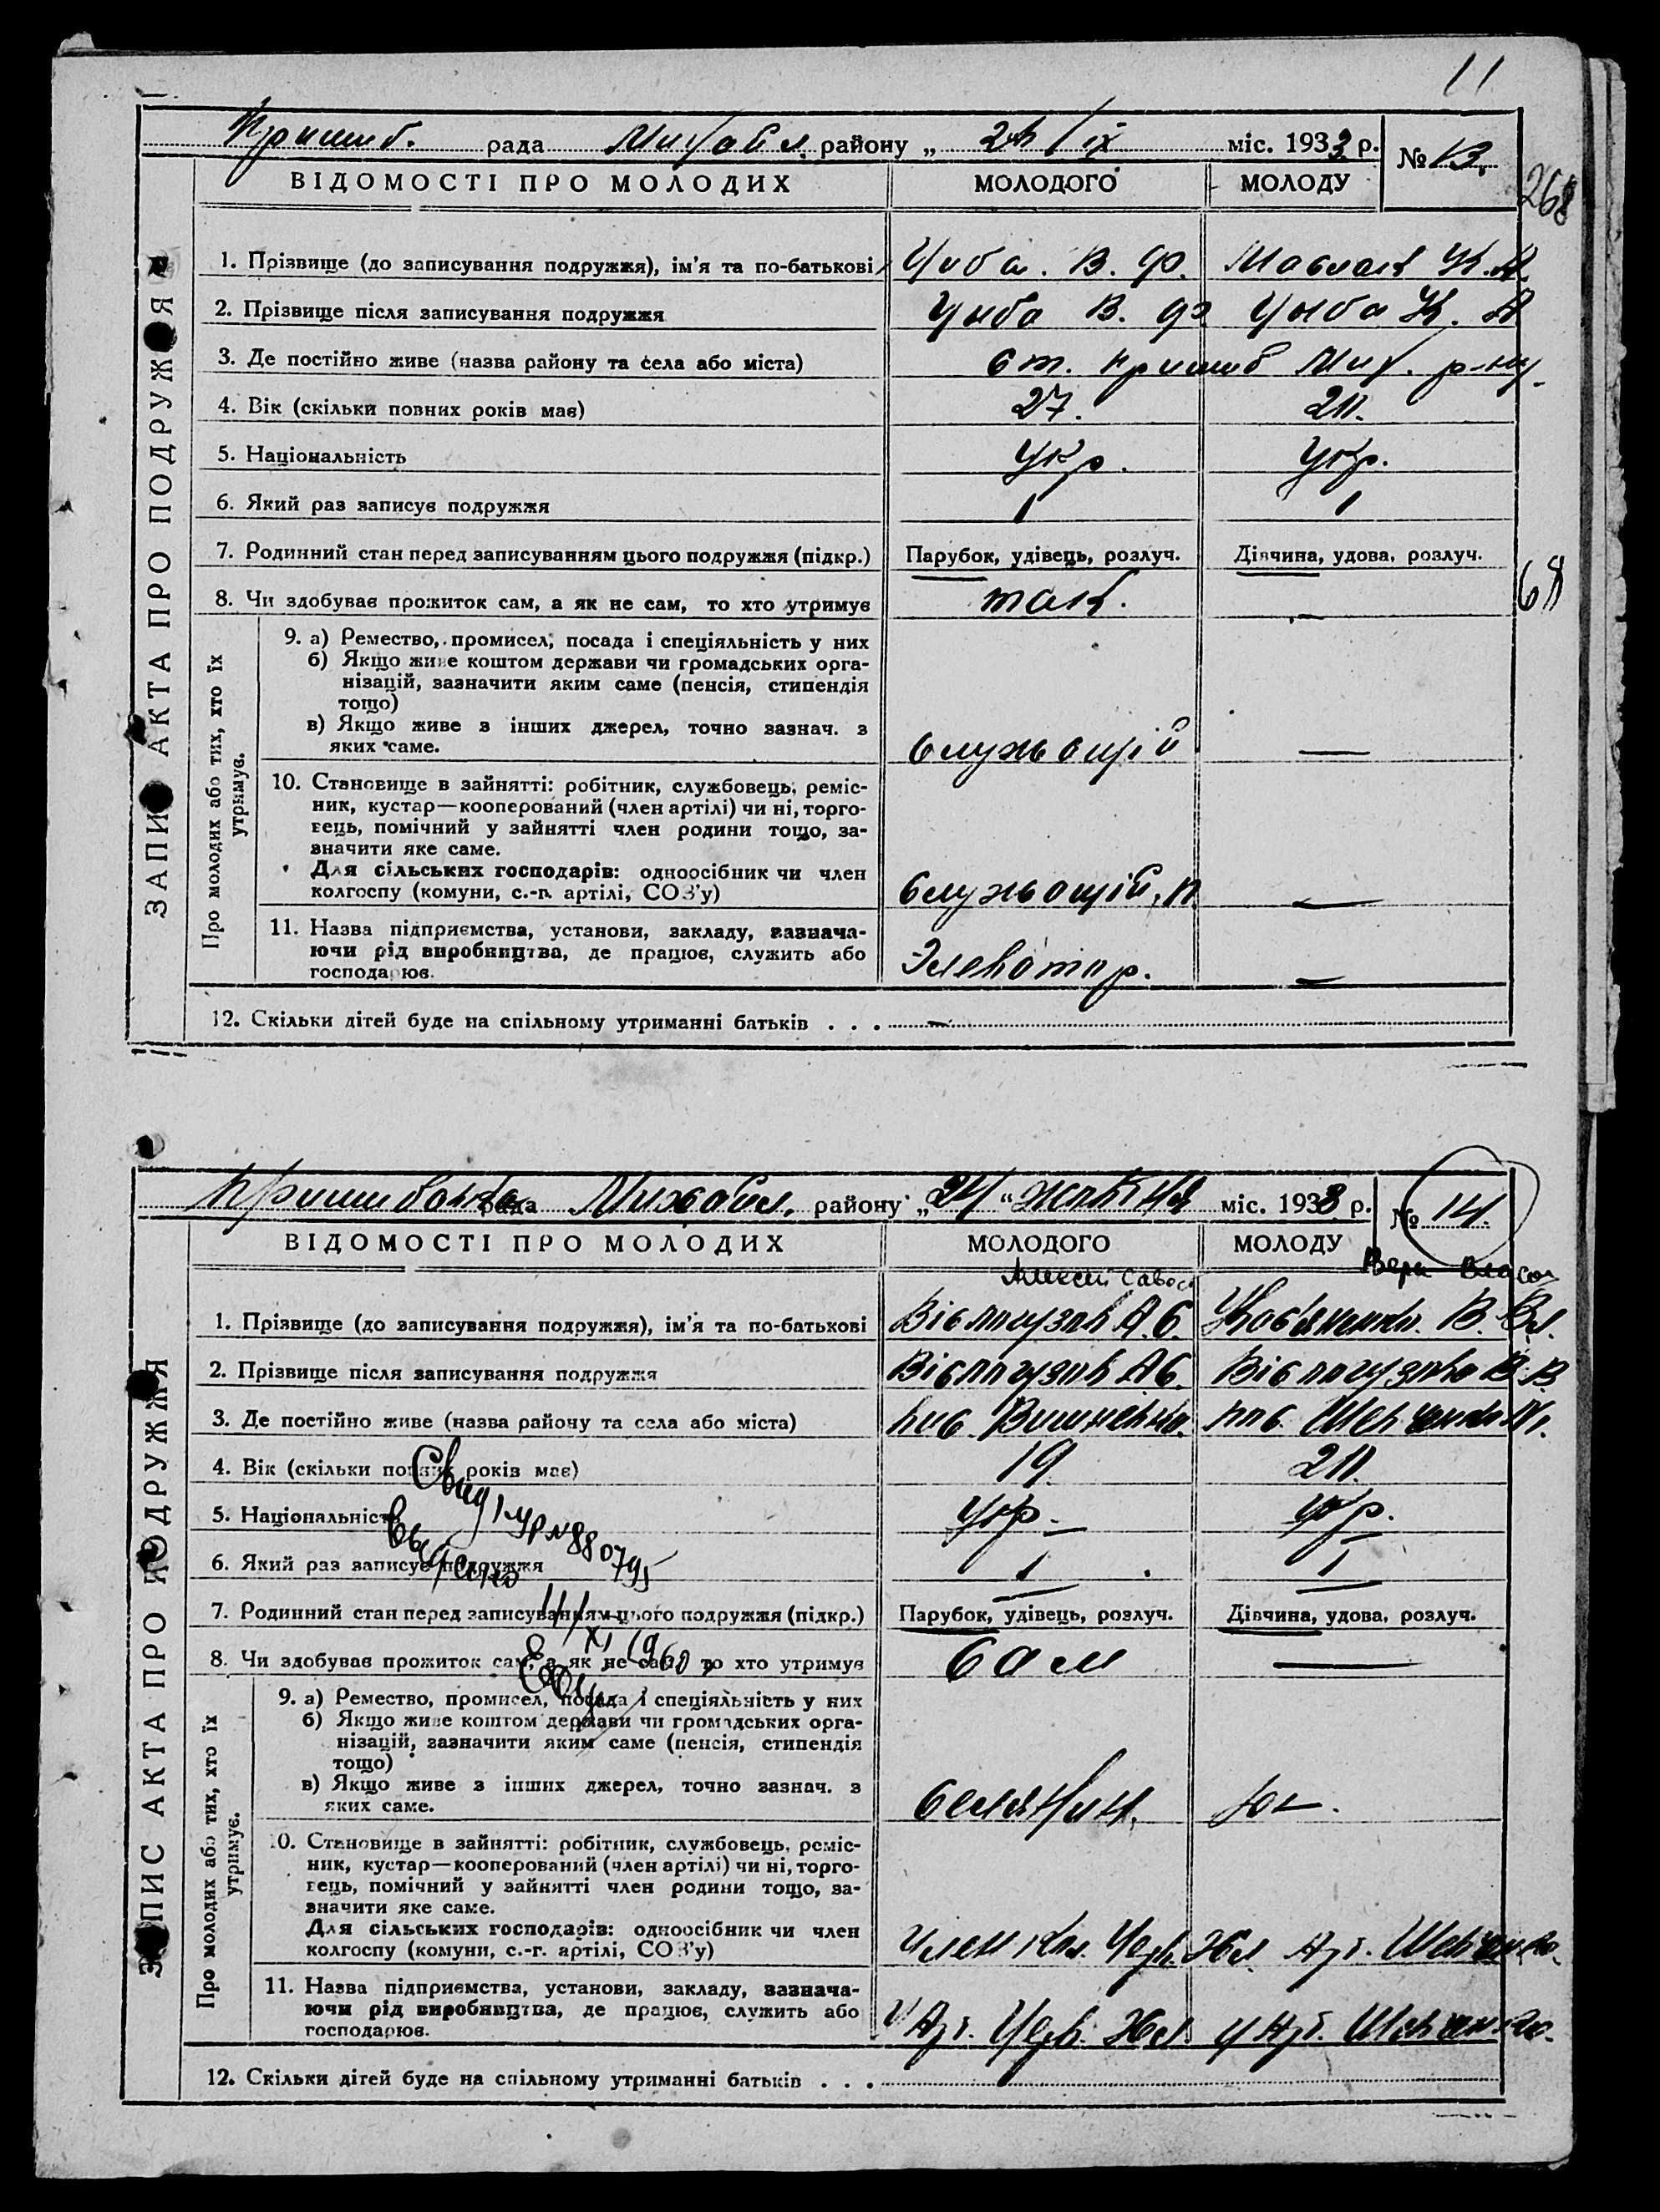 11
Пришиб. рада Михайл. району „ IX міс. 1933 р. № 13.
ВІДОМОСТІ ПРО МОЛОДИХ МОЛОДОГО МОЛОДУ
268
ЗАПИС АКТА ПРО ПОДРУЖЖЯ
1. Прізвище (до записування подружжя), ім'я та по-батькові Циба. В. Ф.
2. Прізвище після записування подружжя Цыба В. Ф. Цыба
3. Де постійно живе (назва району та села або міста) ст. Пришиб Мих. р-ну
4. Вік (скільки повних років має) 27.
5. Національність Укр. Укр.
6. Який раз записує подружжя 1 1
7. Родинний стан перед записуванням цього подружжя (підкр.) Парубок, удівець, розлуч. Дівчина, удова, розлуч.
8. Чи здобуває прожиток сам, а як не сам, то хто утримує так. –
68
Про молодих або тих, хто їх утримує.
9. а) Ремество, промисел, посада і спеціяльність у них
б) Якщо живе коштом держави чи громадських орга-
нізацій, зазначити яким саме (пенсія, стипендія
тощо)
в) Якщо живе з інших джерел, точно зазнач. з
яких саме. Служащій —
10. Становище в зайнятті: робітник, службовець, реміс-
ник, кустар—кооперований (член артілі) чи ні, торго-
вець, помічний у зайнятті член родини тощо, за-
значити яке саме.
Для сільських господарів: одноосібник чи член
колгоспу (комуни, с.-г. артілі, СОЗ'у) Служащій —
11. Назва підприємства, установи, закладу, зазнача-
ючи рід виробництва, де працює, служить або
господарює. Элеватор. –
12. Скільки дітей буде на спільному утриманні батьків . . . –
рада Михайл. району „24“ жовтня міс. 1933 р. № 14.
ВІДОМОСТІ ПРО МОЛОДИХ МОЛОДОГО МОЛОДУ
Алексей Вера
ЗАПИС АКТА ПРО ПОДРУЖЖЯ
1. Прізвище (до записування подружжя), ім'я та по-батькові А. С. В. Вл.
2. Прізвище після записування подружжя А С. В. В.
3. Де постійно живе (назва району та села або міста) пос. Вишневка. пос. Шевченко
4. Вік (скільки повних років має) 19
5. Національність Укр. Укр.
6. Який раз записує подружжя 1 1
Свид 880795
7. Родинний стан перед записуванням цього подружжя (підкр.) Парубок, удівець, розлуч. Дівчина, удова, розлуч.
8. Чи здобуває прожиток сам, а як не сам, то хто утримує Сам —
XI 1960
Про молодих або тих, хто їх утримує.
9. а) Ремество, промисел, посада і спеціяльність у них
б) Якщо живе коштом держави чи громадських орга-
нізацій, зазначити яким саме (пенсія, стипендія
тощо)
в) Якщо живе з інших джерел, точно зазнач. з
яких саме. Селянин.
10. Становище в зайнятті: робітник, службовець, реміс-
ник, кустар—кооперований (член артілі) чи ні, торго-
вець, помічний у зайнятті член родини тощо, за-
значити яке саме.
Для сільських господарів: одноосібник чи член
колгоспу (комуни, с.-г. артілі, СОЗ'у) член кол. Черв. Арт. Шевченко.
11. Назва підприємства, установи, закладу, зазнача-
ючи рід виробництва, де працює, служить або
господарює. У Арт. Черв. у Арт. Шевченко.
12. Скільки дітей буде на спільному утриманні батьків . . .